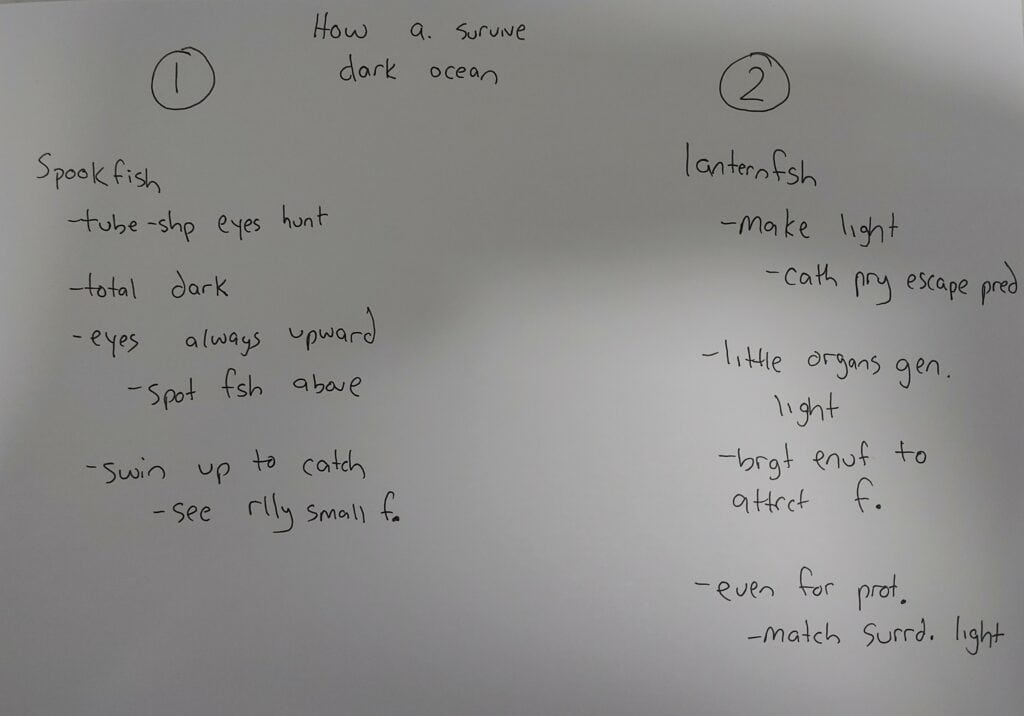 How a. survive
dark ocean
1
Spookfish
-tube-shp eyes hunt
-total dark
-eyes always upward
-spot fsh above
-swin up to catch
-see rlly small f.
2
lanternfsh
-make light
-cath pry escape pred
-little organs gen.
light
-brgt enuf to
attrct f.
-even for prot.
-match surrd. light